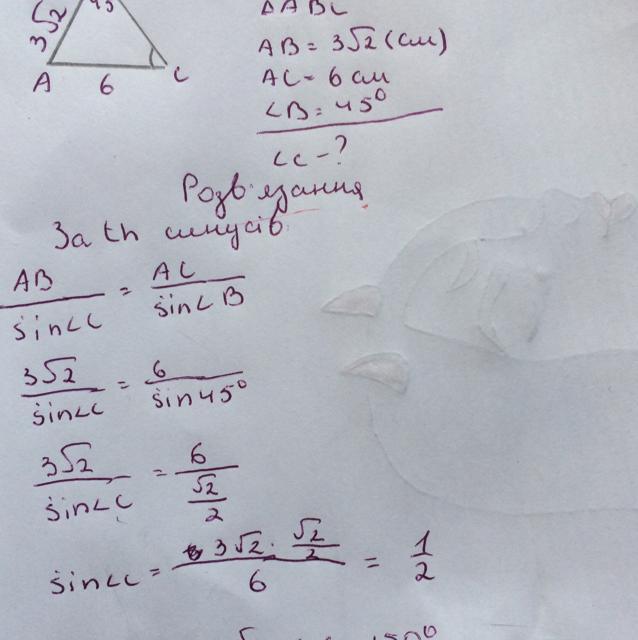 3√2
45
A 6 C
ΔABC
AB = 3√2 (см)
AC - 6 см
∠B = 45°
∠C - ?
Розв'язання
За th синусів
AB / sin∠C = AC / sin∠B
3√2 / sin∠C = 6 / sin45°
3√2 / sin∠C = 6 / (√2 / 2)
sin∠C = 3√2 · √2/2 / 6 = 1/2